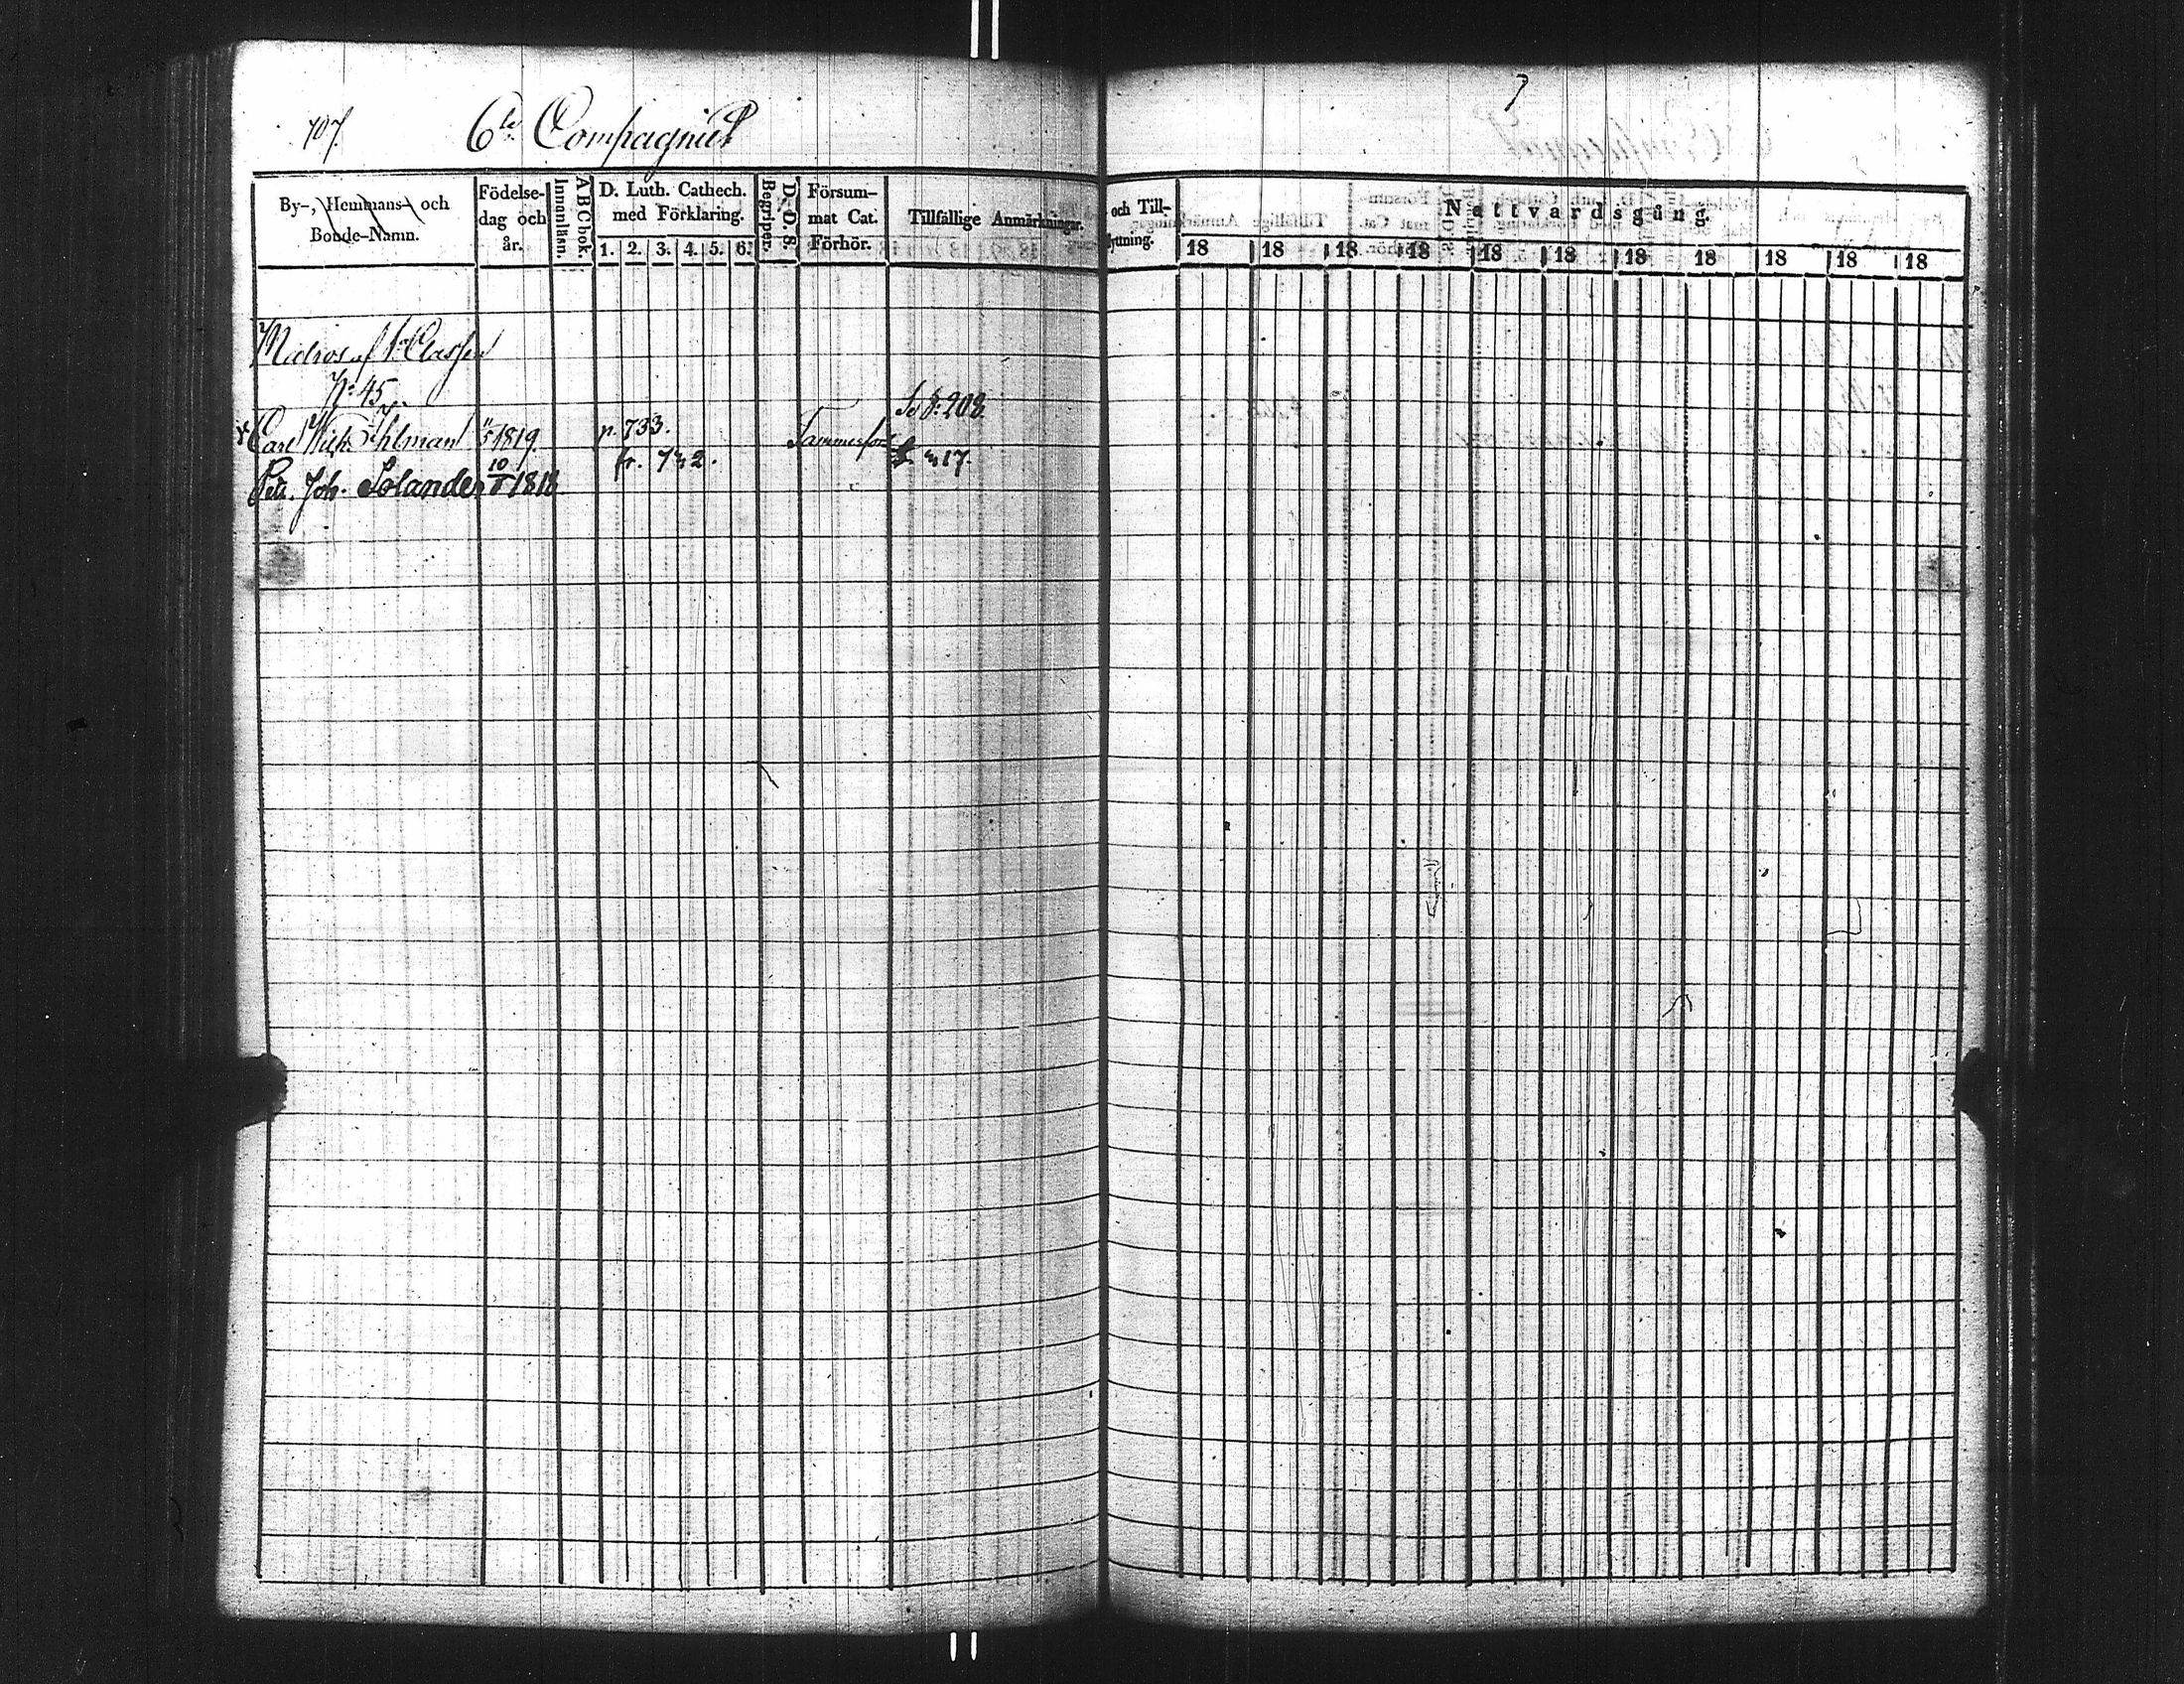 707.
6te Compagniet
By-, Hemmans- och Bonde-Namn.
Födelse-dag och år.
Innanläsn.
ABCbok.
D. Luth. Cathech. med Förklaring.
1. 2. 3. 4. 5. 6.
Begriper.
D. O. S.
Försum-mat Cat. Förhör.
Tillfällige Anmärkningar.
och Till-
yttning.
Nattvardsgång
18 18 18 18 18 18 18 18 18 18 18
Matros af 1a Classen
No 45
Se p: 208
Carl Wilh. Ihlman 1819. p. 733. Tammerfors
fr. 742. 17.
Joh. Solander 10/8 1818